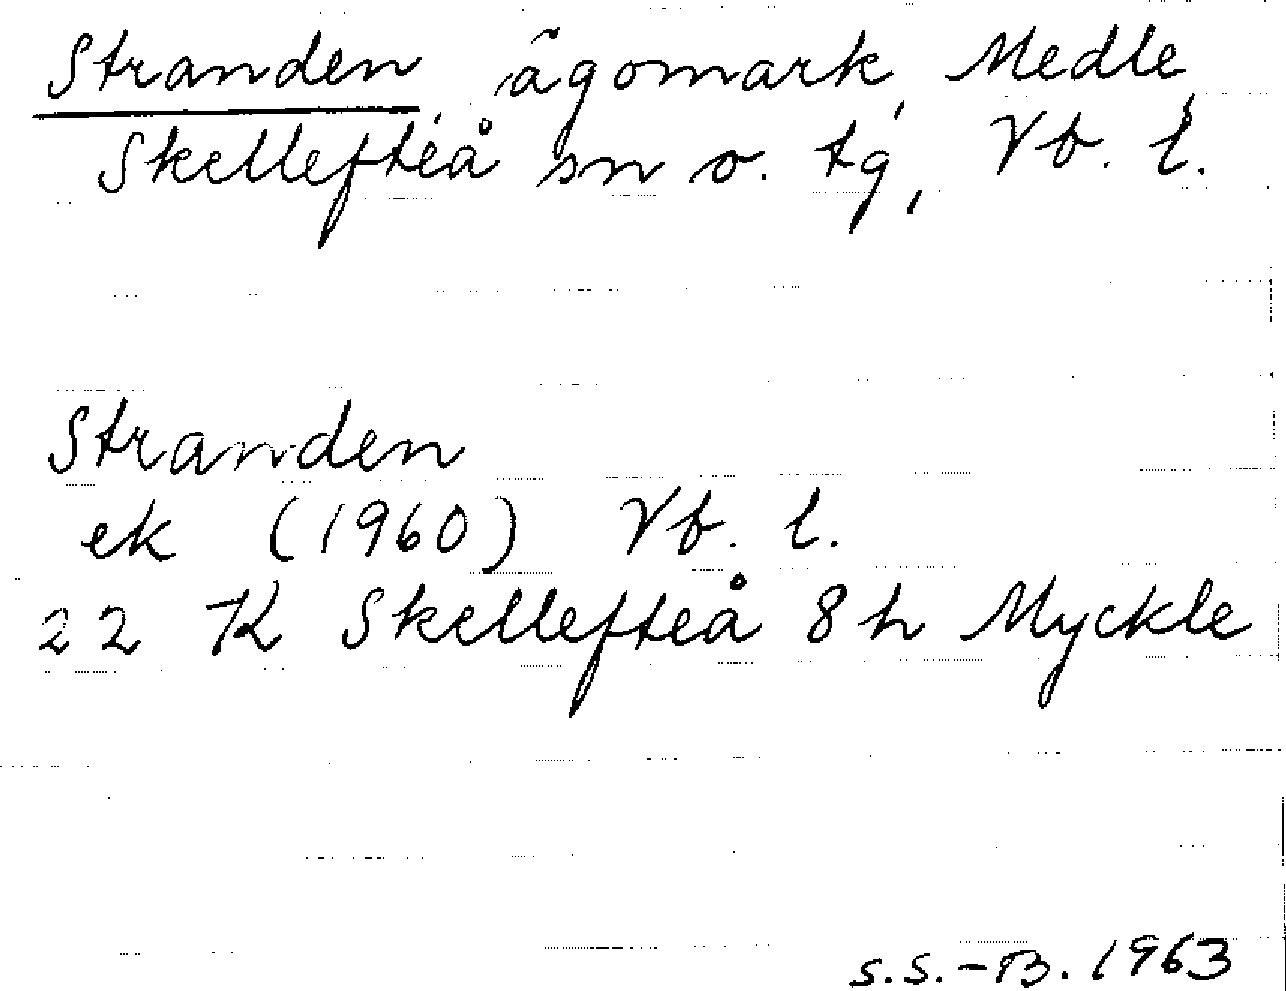 Stranden, ägomark, Medle,
Skellefteå sn o. tg, Vb. l.
Stranden
ek (1960) Vb. l.
22 K Skellefteå 8 h Myckle
S.S.-B. 1963